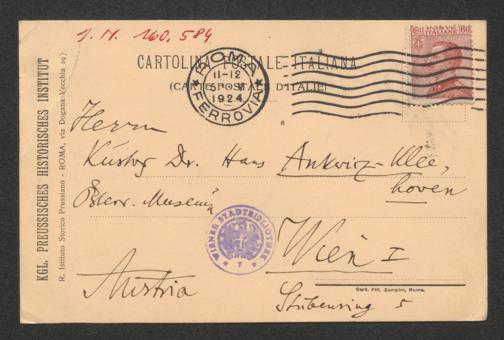 J. N. 160.584
KGL. PREUSSISCHES HISTORISCHES INSTITUT
R. Istituto Storico Prussiano - ROMA, via Dogana-Vecchia 29)
CARTOLINA POSTALE ITALIANA
(CARTE POSTALE D'ITALIE)
ROMA
11-12
1924
FERROVIA
Herrn
Kustos Dr. Hans Ankwicz-Klee,
hoven
Österr. Museum
WIENER STADTBIBLIOTHEK
Wien I
Austria
Stubenring 5